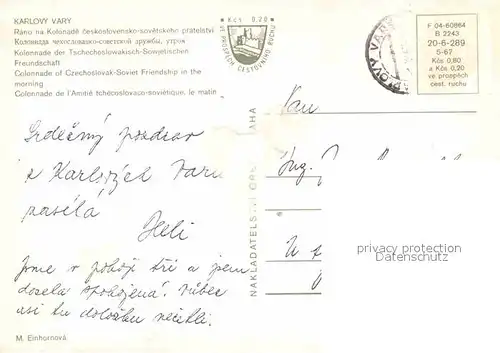 KARLOVY VARY
Ráno na Kolonádě československo-sovětského přátelství
Колоннада чехословацко-советской дружбы, утром
Kolonnade der Tschechoslowakisch-Sowjetischen
Freundschaft
Colonnade of Czechoslovak-Soviet Friendship in the
morning
Colonnade de l'Amitié tchécoslovaco-soviétique, le matin
Kčs 0,20
VE PROSPĚCH CESTOVNÍHO RUCHU
KARLOVY VARY
F 04-60864
B 2243
20-6-289
5-67
Kčs 0,80
a Kčs 0,20
ve prospěch
cest. ruchu
Srdečný pozdrav
z Karlových Varů
posílá
Heli
Jsme v pokoji tři a jsem
docela spokojená. Vůbec
asi tu doložku nečetli.
M. Einhornová
NAKLADATELSTVÍ PRAHA
Pan
Ing.
U
privacy protection
Datenschutz